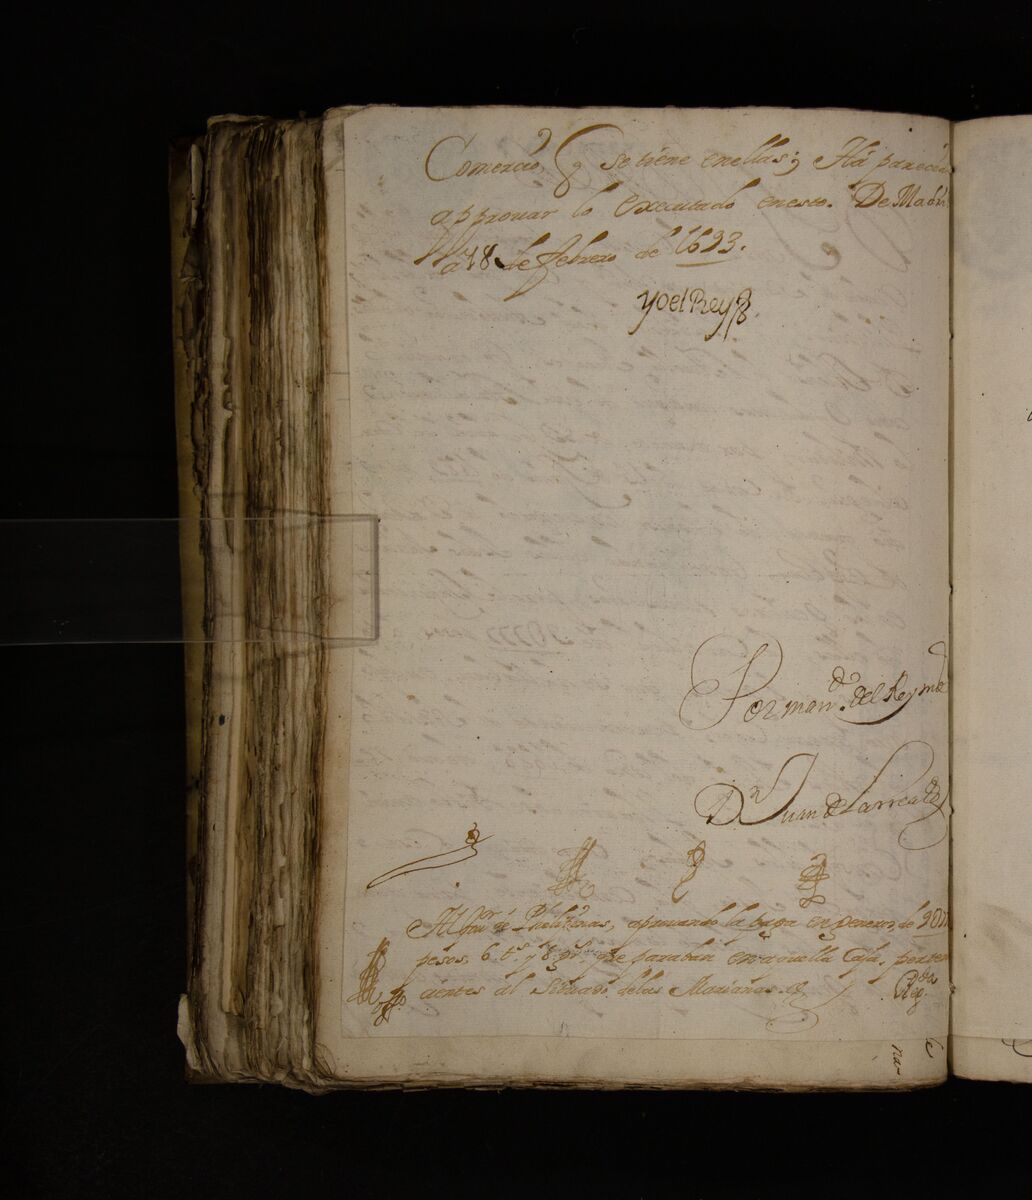 Comercio q se tiene enellas; Ha parecido
approuar lo executado enesto. De Madrid
a 18 de febrero de 1693.
Yo el Rey
Por man.do del Rey
Dn Juan de Larrea
Al de Phelipenas, aprouando la paga en generos, de
pesos, 6. ts y 8. que paraban en aquella Caja, perten
cientes al Situado delas Marianas.
Reg.da